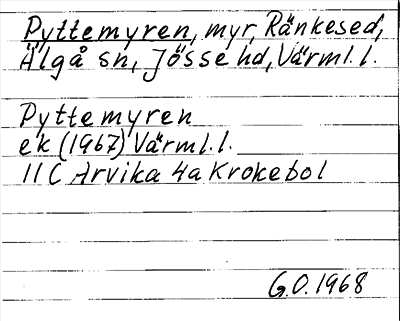 Pyttemyren, myr, Ränkesed,
Älgå sn, Jösse hd, Värml. l.
Pyttemyren
ek (1967) Värml. l.
11 C Arvika 4a Krokebol
G.O. 1968